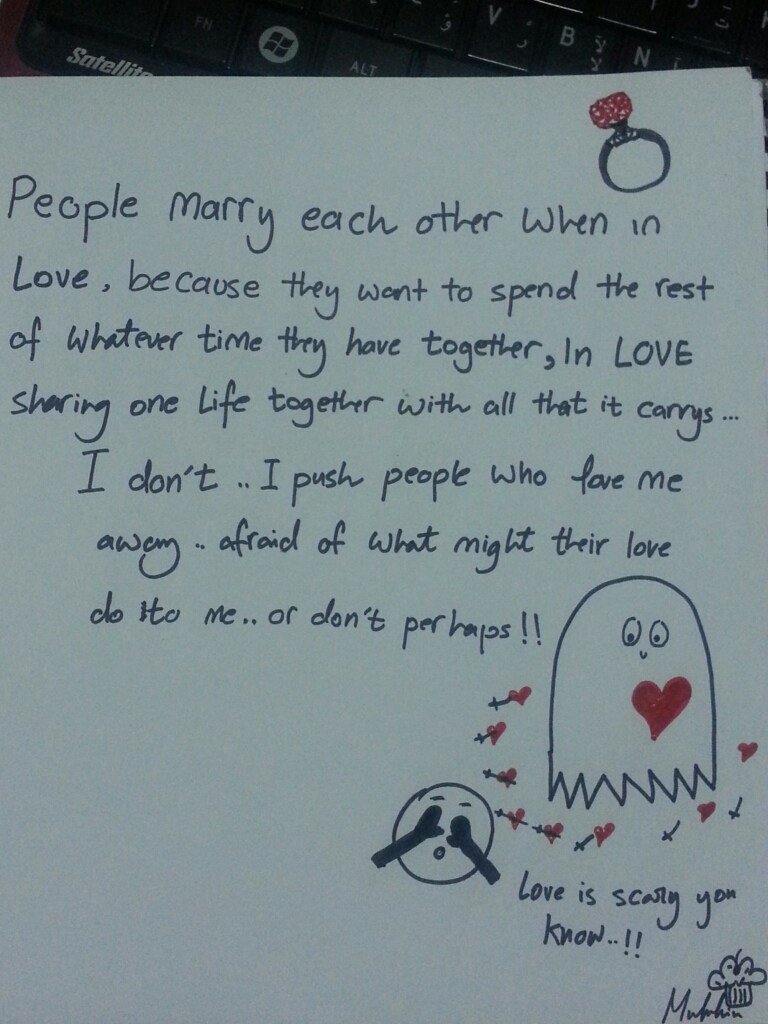 Satellite
FN
ALT
V
B
N
People marry each other when in
Love, because they want to spend the rest
of whatever time they have together, In LOVE
sharing one Life together with all that it carrys...
I don't .. I push people who love me
away .. afraid of what might their love
do to me.. or don't perhaps!!
Love is scary you
know..!!